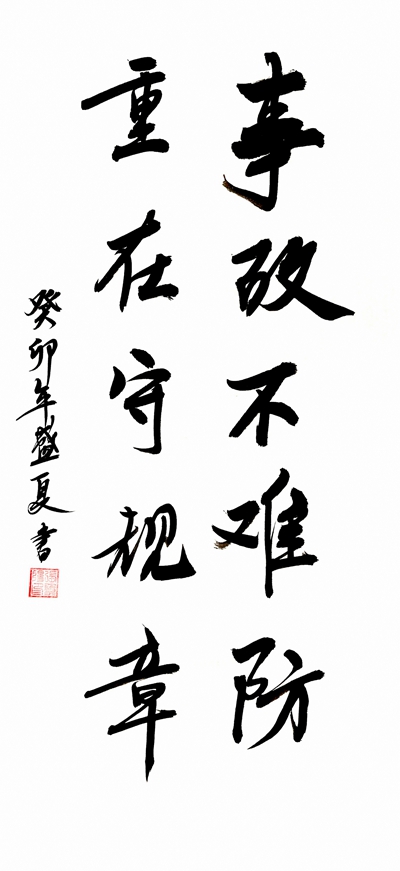 事故不难防
重在守规章
癸卯年盛夏书